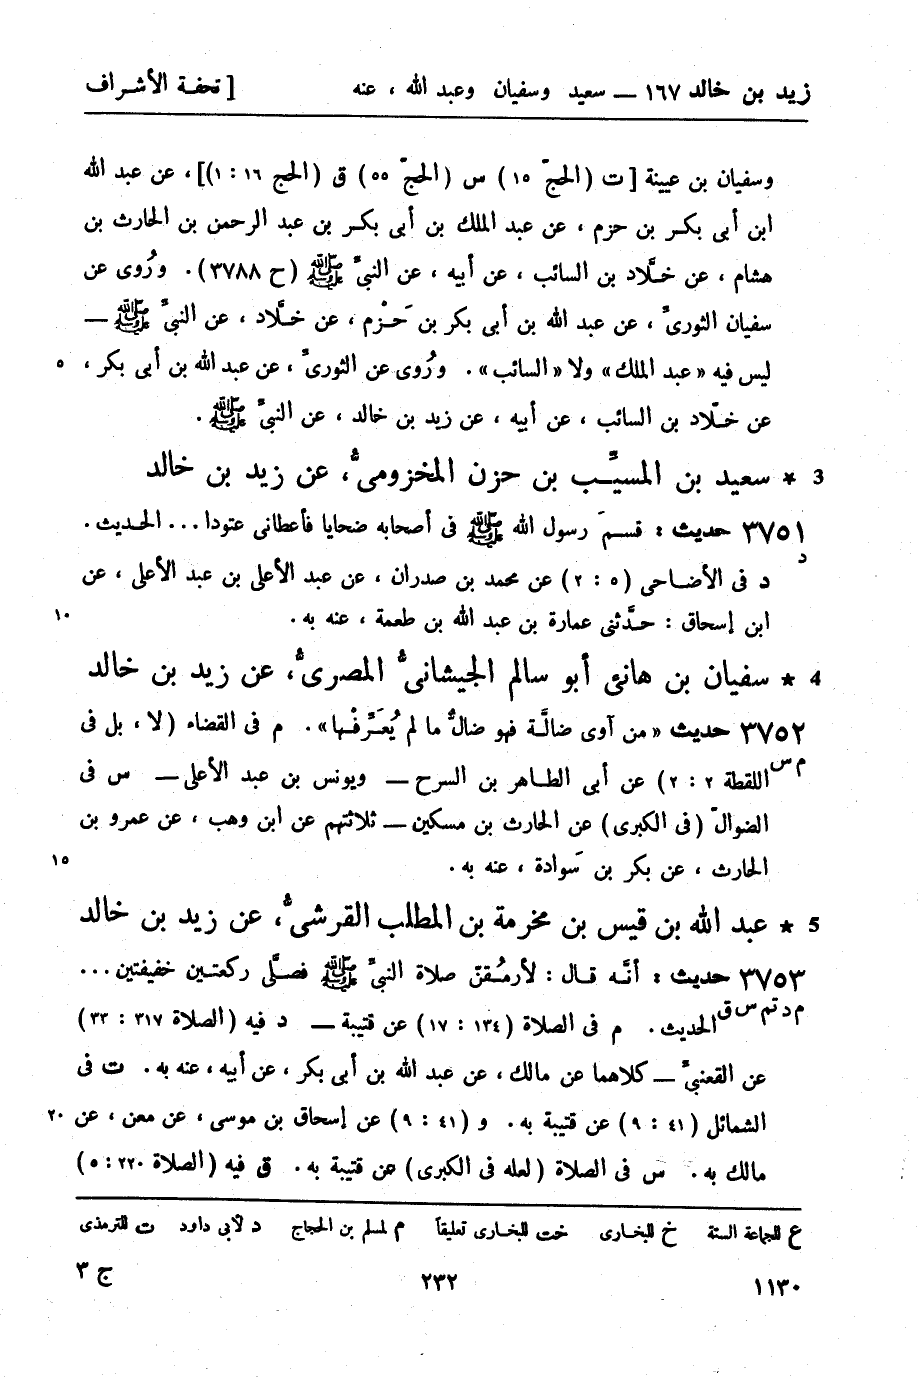 زيد بن خالد ١٦٧ — سعيد وسفيان وعبد الله ، عنه [ تحفة الأشراف
وسفيان بن عيينة [ ت (الحجّ ١٥) س (الحجّ ٥٥) ق (الحج ١٦ : ١)]، عن عبد الله
ابن أبى بكر بن حزم ، عن عبد الملك بن أبى بكر بن عبد الرحمن بن الحارث بن
هشام ، عن خلَّاد بن السائب ، عن أبيه ، عن النبىِّ ﷺ (ح ٣٧٨٨). ورُوى عن
سفيان الثورىِّ ، عن عبد الله بن أبى بكر بن حَزْم ، عن خلَّاد ، عن النبىِّ ﷺ —
ليس فيه «عبد الملك» ولا «السائب». ورُوى عن الثورىِّ ، عن عبد الله بن أبى بكر ، ٥
عن خلّاد بن السائب ، عن أبيه ، عن زيد بن خالد ، عن النبىِّ ﷺ.
3 * سعيد بن المسيِّب بن حزن المخزومىُّ، عن زيد بن خالد
٣٧٥١ حديث : قسمَ رسول الله ﷺ فى أصحابه ضحايا فأعطانى عتودا... الحديث.
د
د فى الأضاحى (٥ : ٢) عن محمد بن صدران ، عن عبد الأعلى بن عبد الأعلى ، عن
ابن إسحاق : حدّثنى عمارة بن عبد الله بن طعمة ، عنه به. ١٠
4 * سفيان بن هانئ أبو سالم الجيشانىُّ المصرىُّ، عن زيد بن خالد
٣٧٥٢ حديث «من آوى ضالَّة فهو ضالٌّ ما لم يُعَرِّفْها». م فى القضاء (لا ، بل فى
م س
اللقطة ٢ : ٢) عن أبى الطاهر بن السرح — ويونس بن عبد الأعلى — س فى
الضوالّ (فى الكبرى) عن الحارث بن مسكين — ثلاثتهم عن ابن وهب ، عن عمرو بن
الحارث ، عن بكر بن سَوادة ، عنه به. ١٥
5 * عبد الله بن قيس بن مخرمة بن المطلب القرشىُّ، عن زيد بن خالد
٣٧٥٣ حديث : أنَّه قال : لأرمُقنّ صلاة النبىِّ ﷺ فصلَّى ركعتين خفيفتين...
م د تم س ق
الحديث. م فى الصلاة (١٣٤ : ١٧) عن قتيبة — د فيه (الصلاة ٣١٧ : ٣٣)
عن القعنبىِّ — كلاهما عن مالك ، عن عبد الله بن أبى بكر ، عن أبيه ، عنه به. ت فى
الشمائل (٤١ : ٩) عن قتيبة به. و (٤١ : ٩) عن إسحاق بن موسى ، عن معن ، عن ٢٠
مالك به. س فى الصلاة (لعله فى الكبرى) عن قتيبة به. ق فيه (الصلاة ٢٢٠ : ٥)
ع للجماعة الستة خ للبخارى خت للبخارى تعليقاً م لمسلم بن الحجاج د لأبى داود ت للترمذى
١١٣٠ ٢٣٢ ج ٣